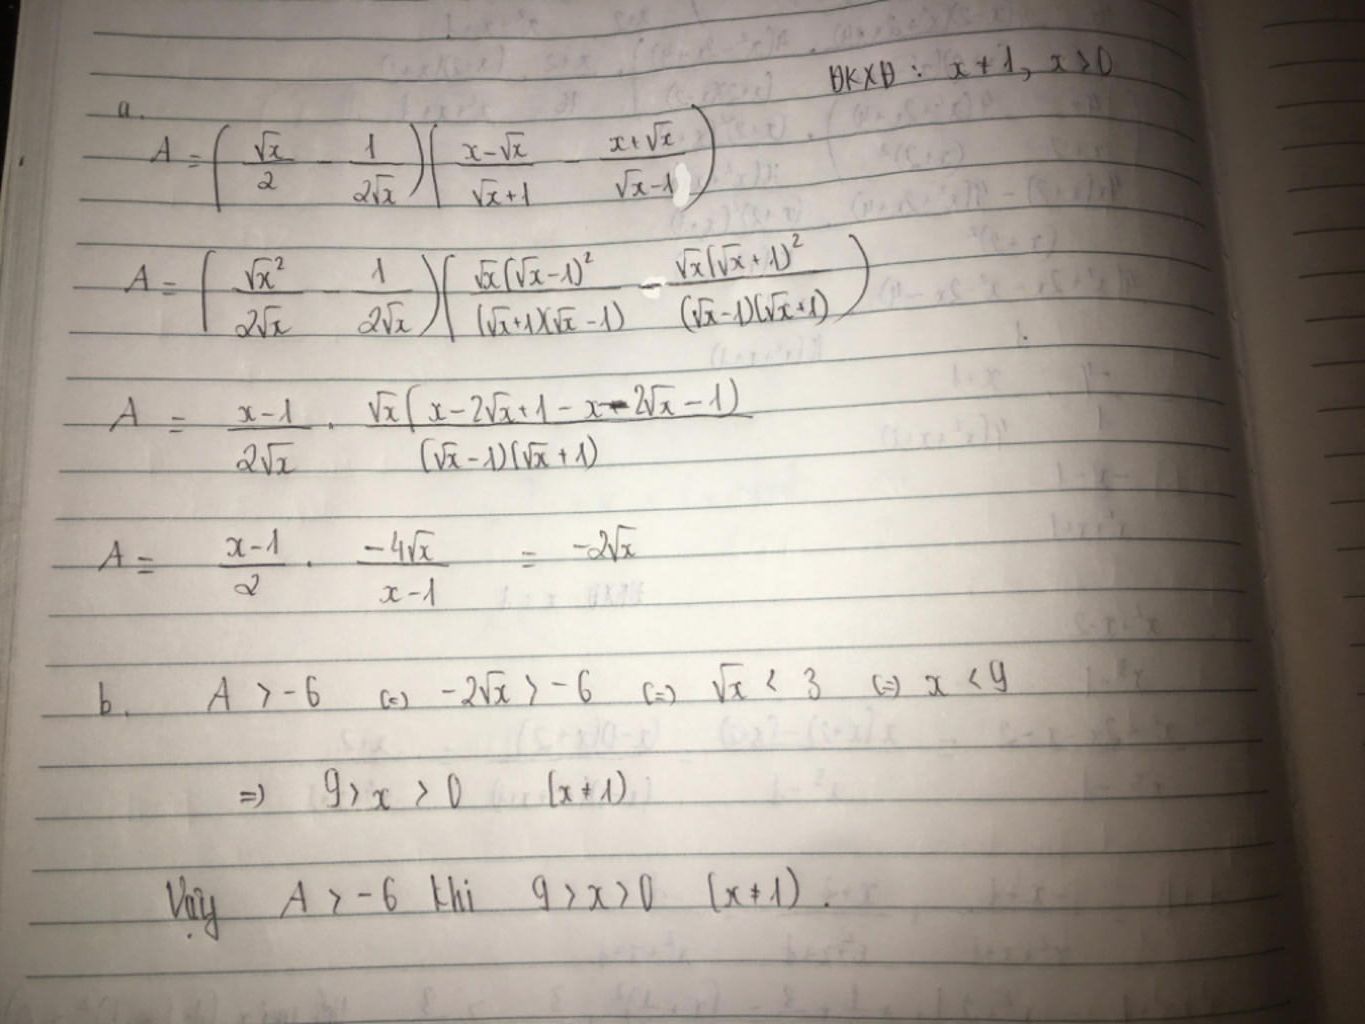 ĐKXĐ : x ≠ 1, x > 0
a.
A = (√x/2 - 1/2√x)(x-√x/√x+1 - x+√x/√x-1)
A = (√x²/2√x - 1/2√x)(√x(√x-1)²/(√x+1)(√x-1) - √x(√x+1)²/(√x-1)(√x+1))
A = x-1/2√x . √x(x-2√x+1-x-2√x-1)/(√x-1)(√x+1)
A = x-1/2 . -4√x/x-1 = -2√x
b. A > -6 (=) -2√x > -6 (=) √x < 3 (=) x < 9
=) 9 > x > 0 (x ≠ 1)
Vậy A > -6 khi 9 > x > 0 (x ≠ 1).